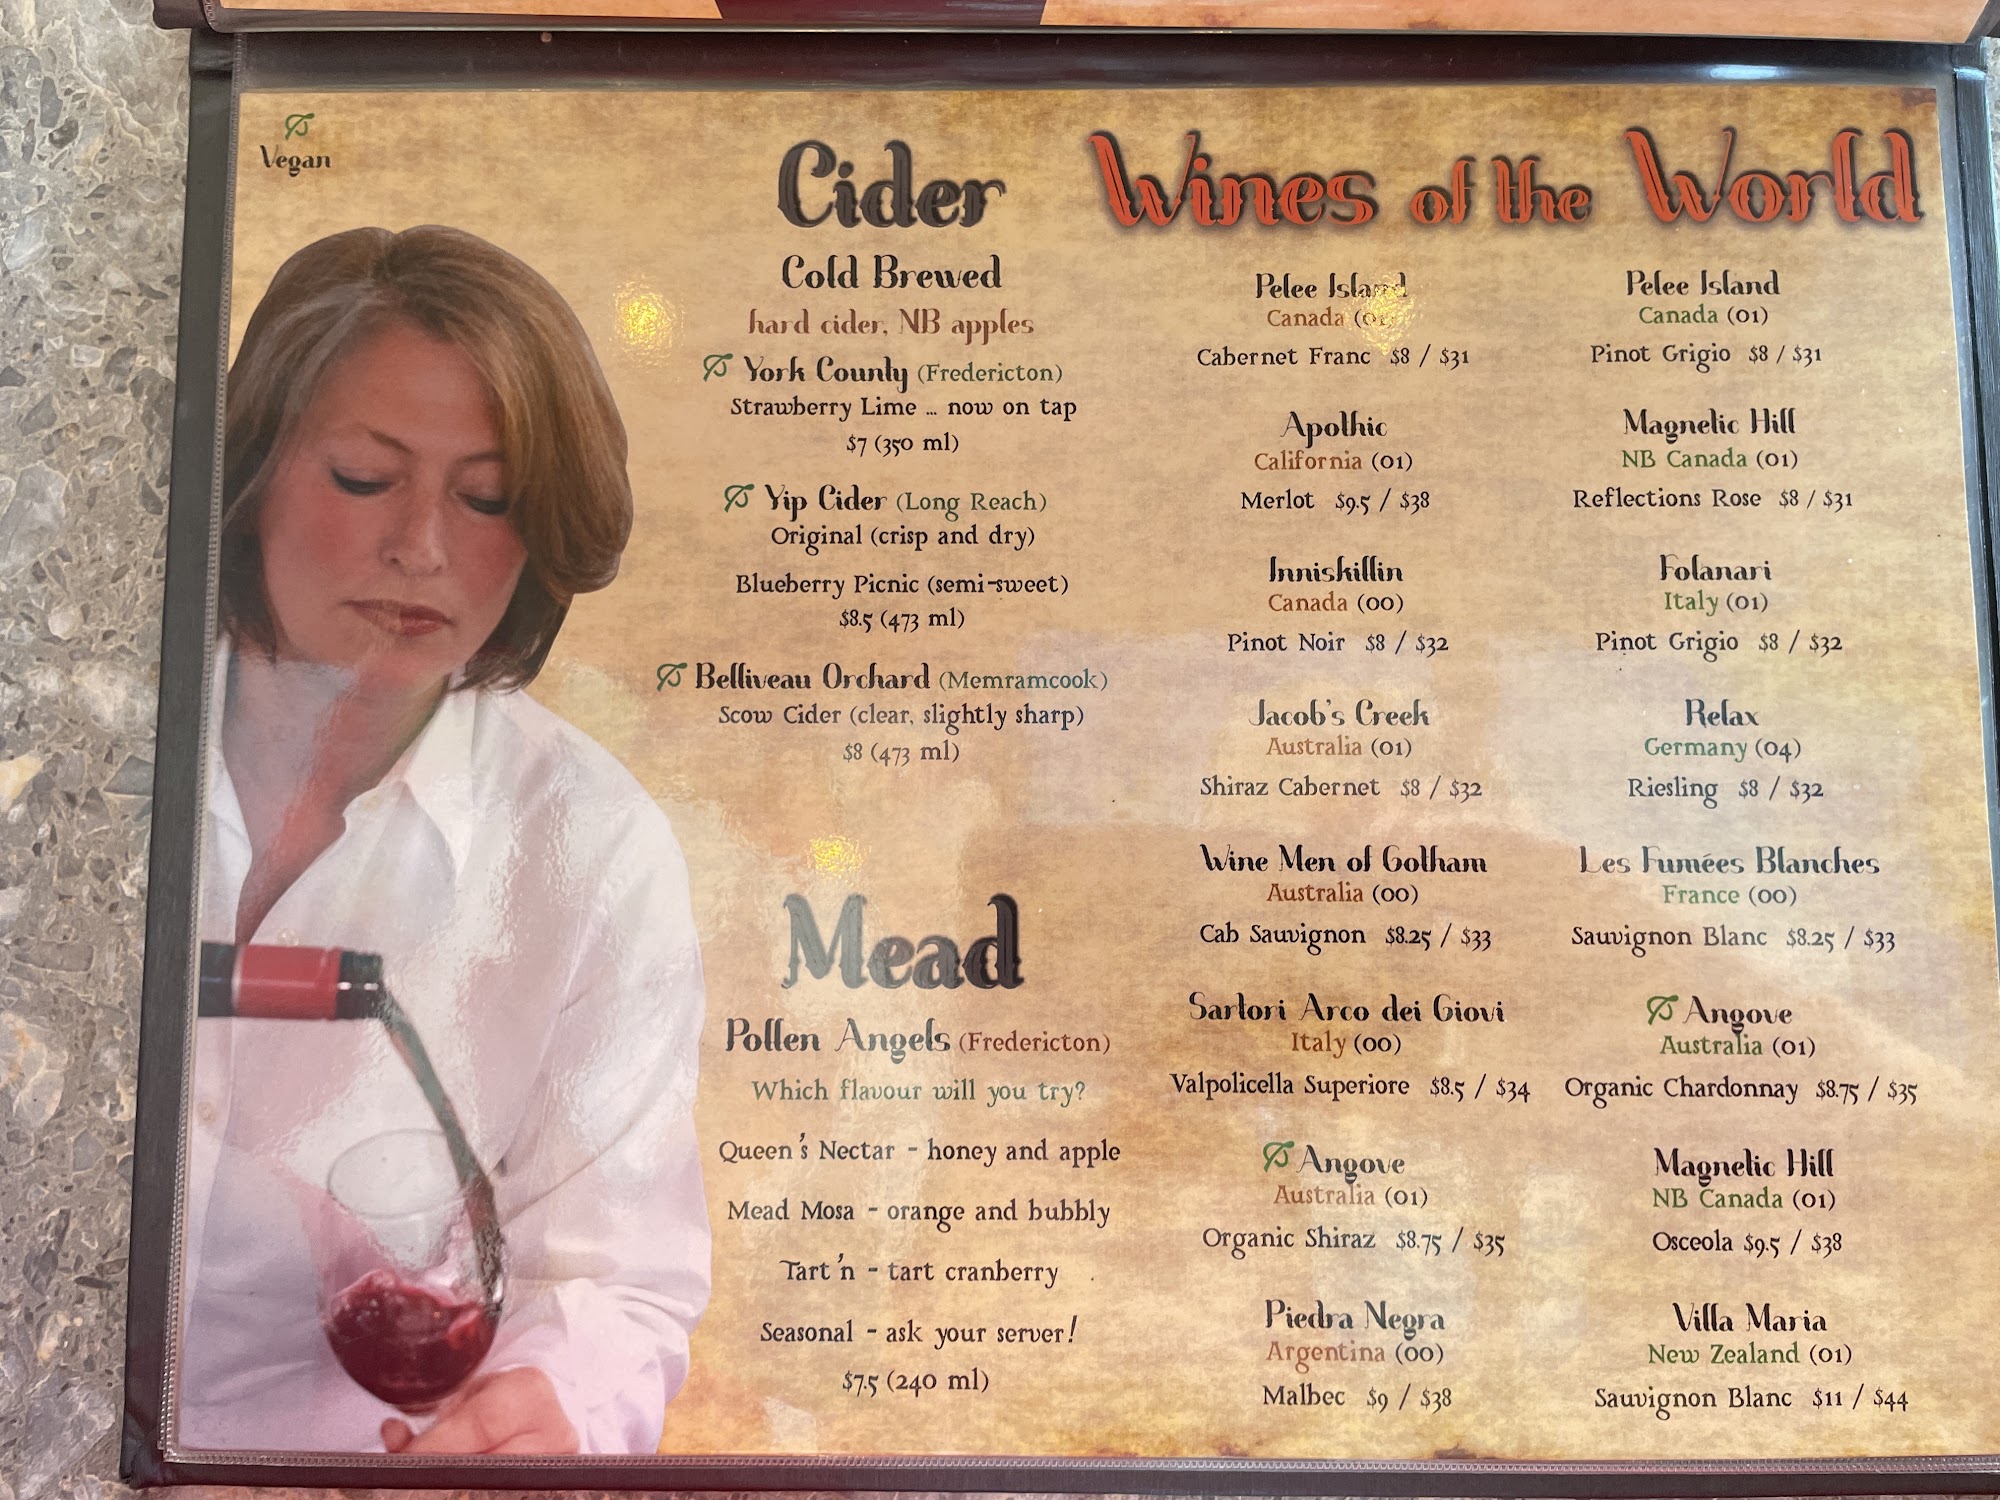 Vegan
Cider
Cold Brewed
hard cider, NB apples
York County (Fredericton)
Strawberry Lime ... now on tap
$7 (350 ml)
Yip Cider (Long Reach)
Original (crisp and dry)
Blueberry Picnic (semi-sweet)
$8.5 (473 ml)
Belliveau Orchard (Memramcook)
Scow Cider (clear, slightly sharp)
$8 (473 ml)
Mead
Pollen Angels (Fredericton)
Which flavour will you try?
Queen's Nectar - honey and apple
Mead Mosa - orange and bubbly
Tart'n - tart cranberry
Seasonal - ask your server!
$7.5 (240 ml)
Wines of the World
Pelee Island
Canada (01)
Cabernet Franc $8 / $31
Apothic
California (01)
Merlot $9.5 / $38
Inniskillin
Canada (00)
Pinot Noir $8 / $32
Jacob's Creek
Australia (01)
Shiraz Cabernet $8 / $32
Wine Men of Gotham
Australia (00)
Cab Sauvignon $8.25 / $33
Sartori Arco dei Giovi
Italy (00)
Valpolicella Superiore $8.5 / $34
Angove
Australia (01)
Organic Shiraz $8.75 / $35
Piedra Negra
Argentina (00)
Malbec $9 / $38
Pelee Island
Canada (01)
Pinot Grigio $8 / $31
Magnetic Hill
NB Canada (01)
Reflections Rose $8 / $31
Folanari
Italy (01)
Pinot Grigio $8 / $32
Relax
Germany (04)
Riesling $8 / $32
Les Fumées Blanches
France (00)
Sauvignon Blanc $8.25 / $33
Angove
Australia (01)
Organic Chardonnay $8.75 / $35
Magnetic Hill
NB Canada (01)
Osceola $9.5 / $38
Villa Maria
New Zealand (01)
Sauvignon Blanc $11 / $44